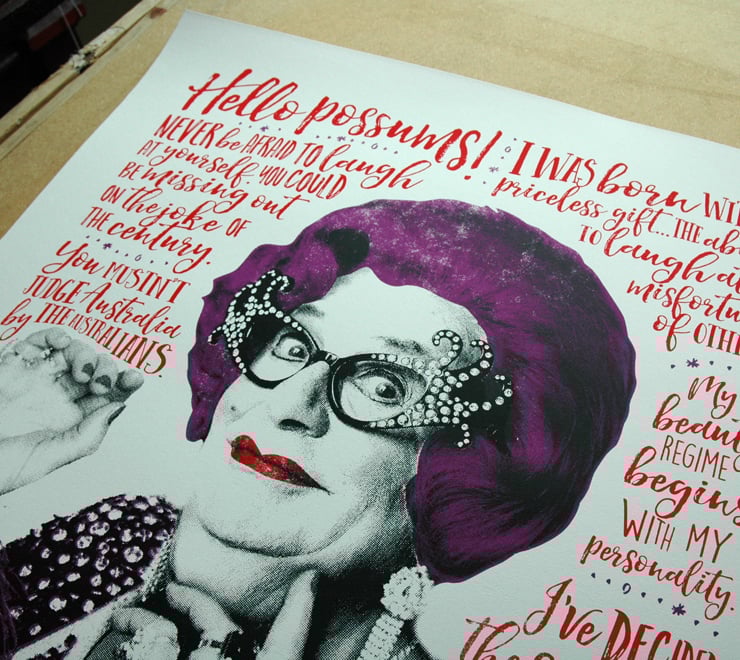 Hello possums!
NEVER be AFRAID TO laugh
AT yourself. YOU COULD
BE missing out
ON the joke OF
THE century.
You MUSTN'T
JUDGE Australia
by THE AUSTRALIANS.
I WAS born
priceless gift... THE
TO laugh
OF
My
REGIME
begins
WITH MY
personality.
I've